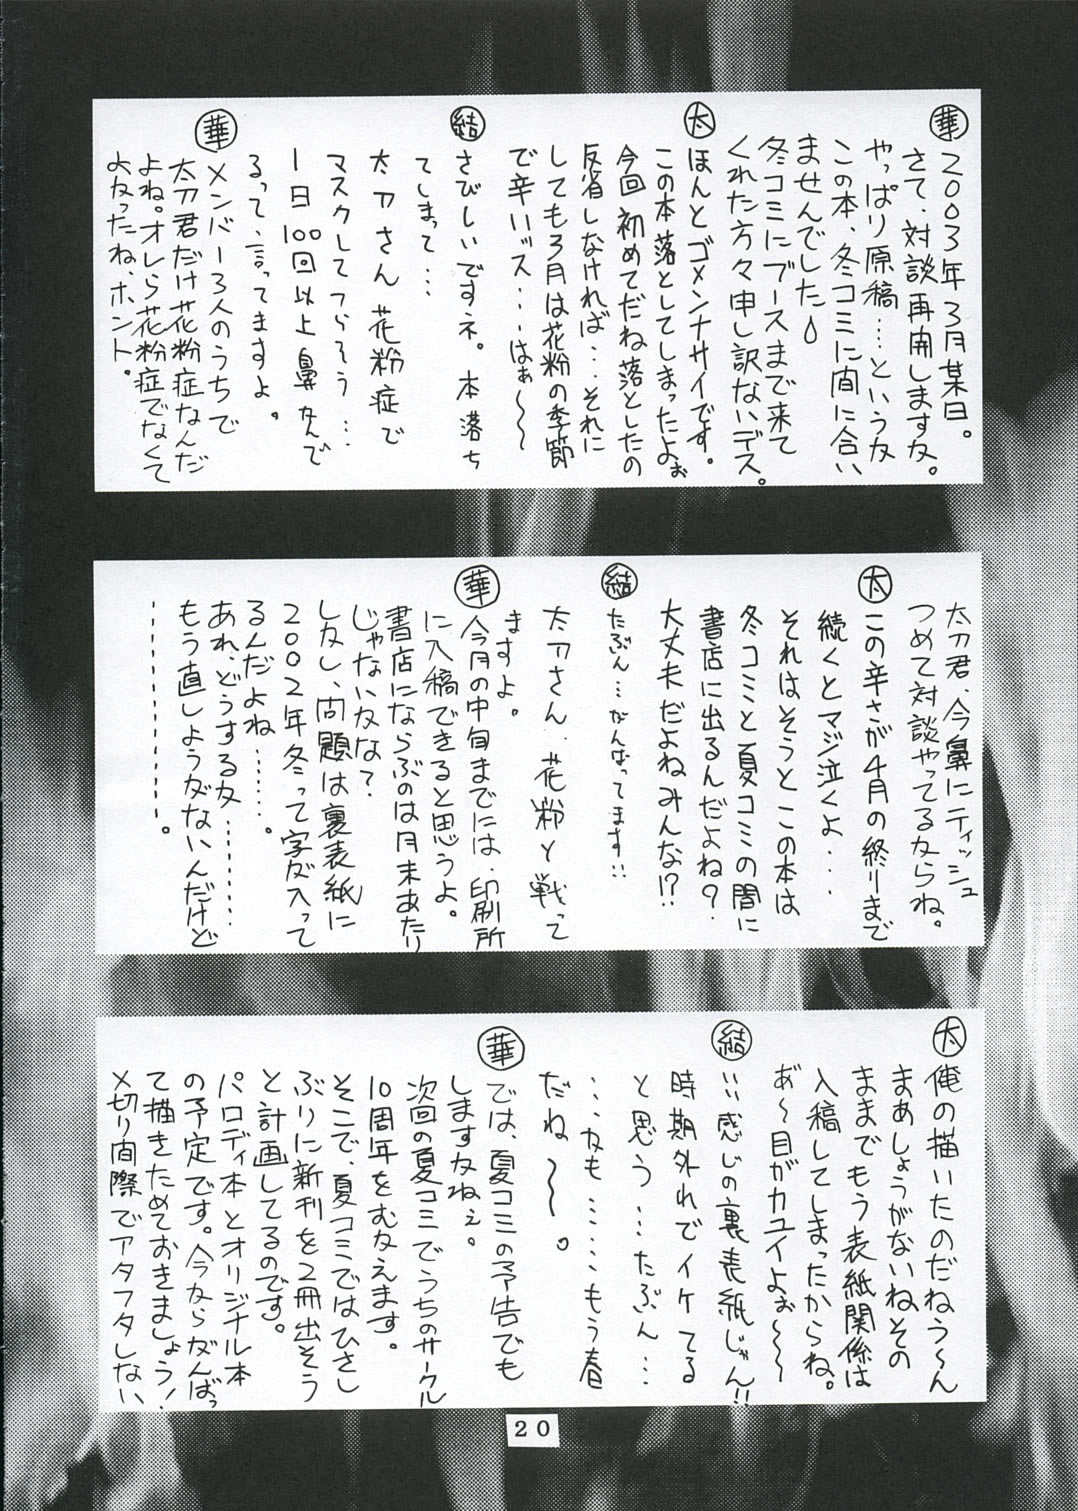 華
２００３年３月某日。
さて、対談再開しますな。
やっぱり原稿…というな
この本、冬コミに間に合い
ませんでした
冬コミにブースまで来て
くれた方々申し訳ないデス。
太
ほんとゴメンナサイです。
この本落としてしまったよぉ
今回初めてだね落としたの
反省しなければ…それに
しても３月は花粉の季節
で辛いッス…はぁ〜〜
結
さびしいですネ。本落ち
てしまって…
太刀さん花粉症で
マスクしてつらそう…
１日１００回以上鼻かんで
るって、言ってますよ。
華
メンバー３人のうちで
太刀君だけ花粉症なんだ
よね。オレら花粉症でなくて
よかったね、ホント。
太刀君、今鼻にティッシュ
つめて対談やってるからね。
太
この辛さが４月の終りまで
続くとマジ泣くよ...
それはそうとこの本は
冬コミと夏コミの間に
書店に出るんだよね？
大丈夫だよねみんな!?
結
たぶん…がんばってます!!
太刀さん、花粉と戦って
ますよ。
華
今月の中旬までには、印刷所
に入稿できると思うよ。
書店にならぶのは月末あたり
じゃないかな？
しかし、問題は裏表紙に
２００２年冬って字が入って
るんだよね……。
あれ、どうするな………
もう直しようがないんだけど
……………。
太
俺の描いたのだねう〜ん
まあしょうがないねその
ままでもう表紙関係は
入稿してしまったからね。
あ゛〜目がカユイよぉ〜〜
結
いい感じの裏表紙じゃん!!
時期外れでイケてる
と思う…たぶん…
…かも……もう春
だね〜〜。
華
では、夏コミの予告でも
しますかねぇ。
次回の夏コミでうちのサークル
10周年をむかえます。
そこで、夏コミではひさし
ぶりに新刊を２冊出そう
と計画してるのです。
パロディ本とオリジナル本
の予定です。今からがんばっ
て描きためておきましょう！
〆切り間際でアタフタしない
２０